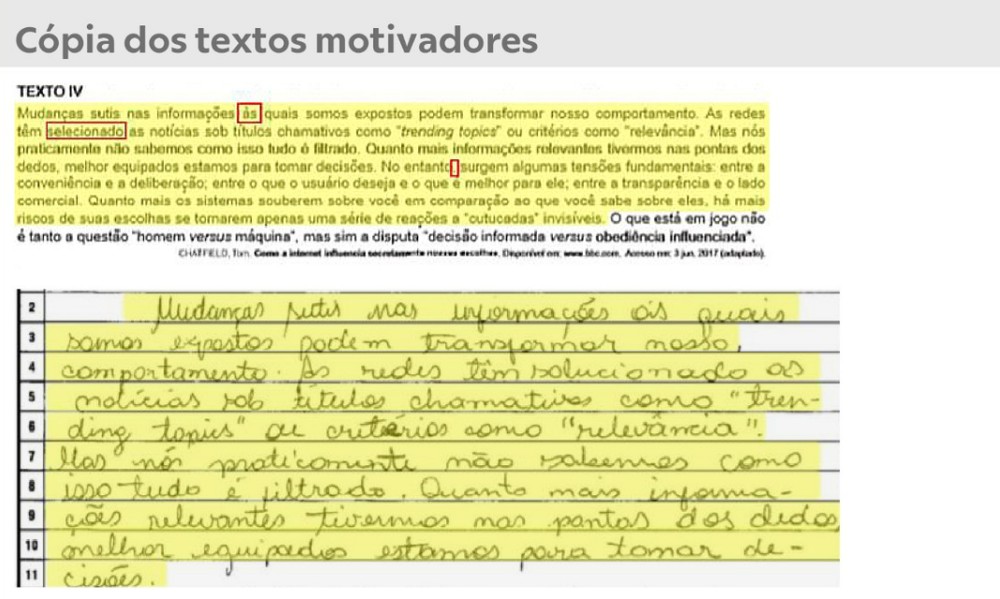 Cópia dos textos motivadores
TEXTO IV
Mudanças sutis nas informações às quais somos expostos podem transformar nosso comportamento. As redes
têm selecionado as notícias sob títulos chamativos como "trending topics" ou critérios como "relevância". Mas nós
praticamente não sabemos como isso tudo é filtrado. Quanto mais informações relevantes tivermos nas pontas dos
dedos, melhor equipados estamos para tomar decisões. No entanto, surgem algumas tensões fundamentais: entre a
conveniência e a deliberação; entre o que o usuário deseja e o que é melhor para ele; entre a transparência e o lado
comercial. Quanto mais os sistemas souberem sobre você em comparação ao que você sabe sobre eles, há mais
riscos de suas escolhas se tornarem apenas uma série de reações a "cutucadas" invisíveis. O que está em jogo não
é tanto a questão "homem versus máquina", mas sim a disputa "decisão informada versus obediência influenciada".
CHATFIELD, Tom. Como a internet influencia secretamente nossas escolhas. Disponível em: www.bbc.com. Acesso em: 3 jun. 2017 (adaptado).
2 Mudanças sutis nas informações ás quais
3 somos expostos podem transformar nosso,
4 comportamento. As redes têm solucionado as
5 notícias sob títulos chamativos como "tren-
6 ding topics" ou critérios como "relevância".
7 Mas nós praticamente não sabemos como
8 isso tudo é filtrado. Quanto mais informa-
9 ções relevantes tivermos nas pontas dos dedos,
10 melhor equipados estamos para tomar de-
11 cisões.